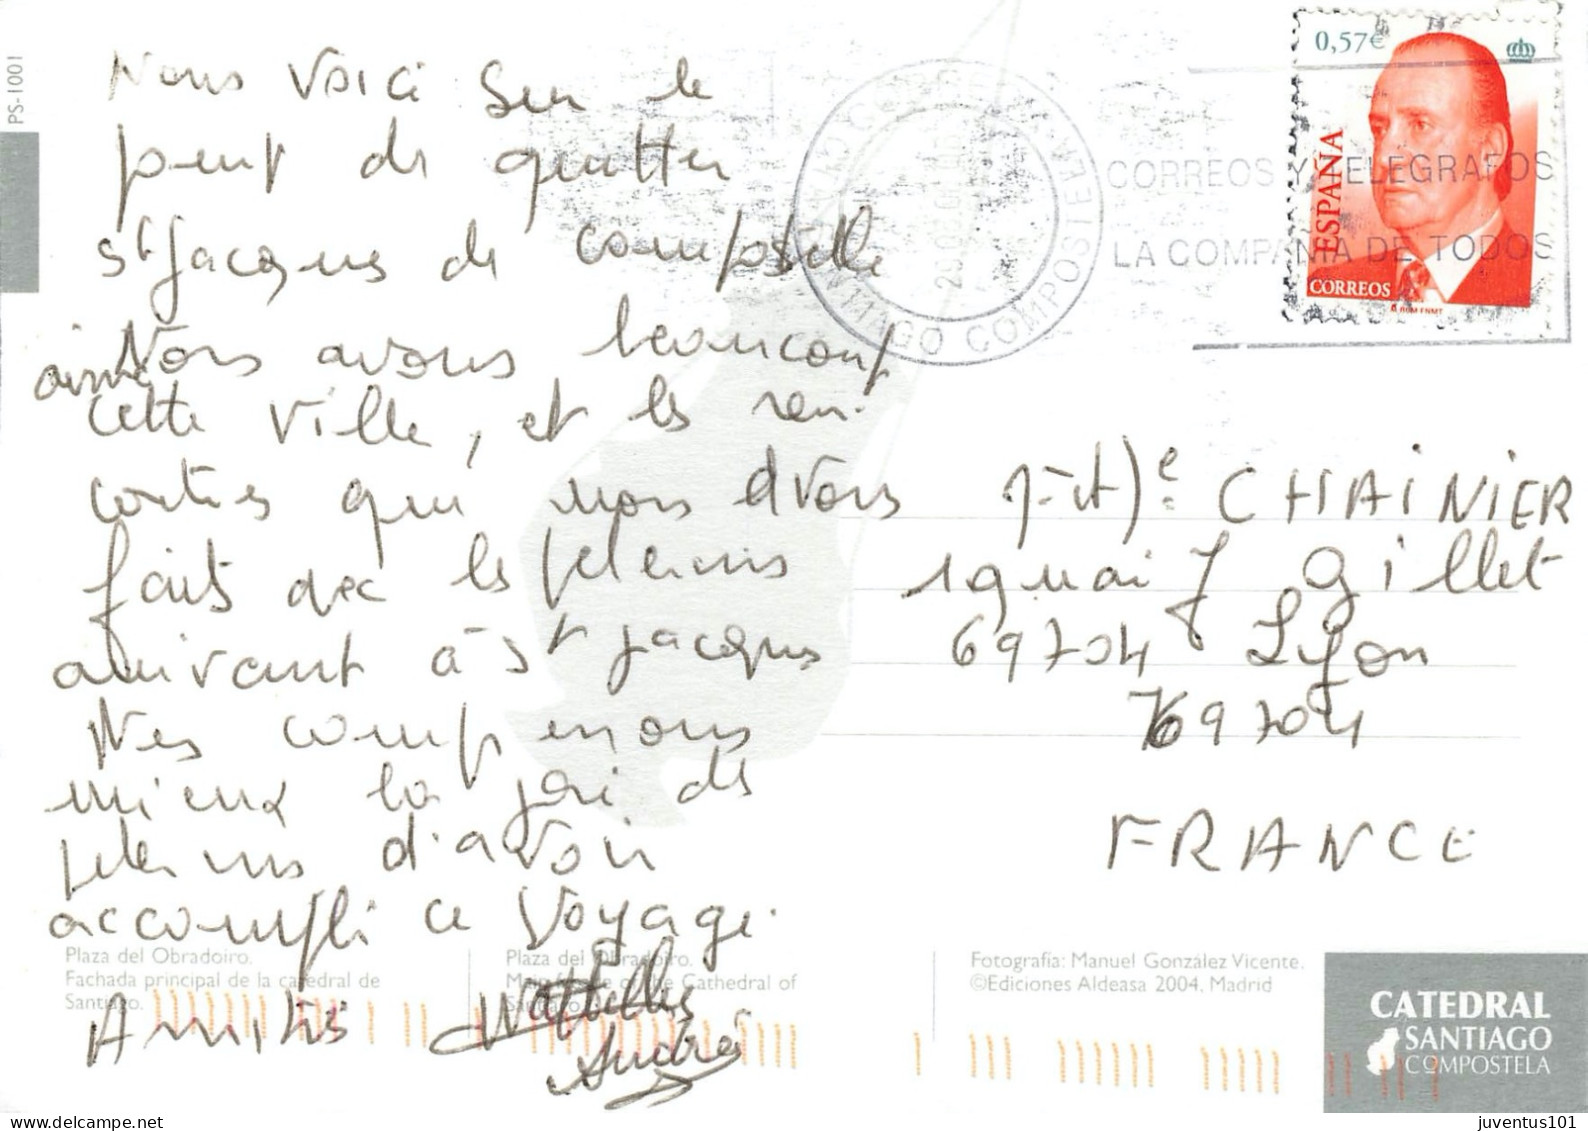 PS-1001
Nous voici sur le
point de quitter
St Jacques de Compostelle
Nous avons beaucoup
aimé
cette ville, et les ren-
contres que nous avons
faits avec les pelerins
arrivant à St Jacques
Nes comprenons
mieux la joie des
pelerins d'avoir
accompli ce voyage.
Amitiés
André
0,57€
ESPAÑA
CORREOS
CORREOS Y TELEGRAFOS
LA COMPAÑIA DE TODOS
SANTIAGO COMPOSTELA
CHAINIER
1 quai J Gillet
69704 Lyon
69704
FRANCE
Plaza del Obradoiro.
Fachada principal de la catedral de
Santiago.
Plaza del Obradoiro.
Main façade of the Cathedral of
Santiago.
Fotografía: Manuel González Vicente.
©Ediciones Aldeasa 2004, Madrid
CATEDRAL
SANTIAGO
COMPOSTELA
juventus101